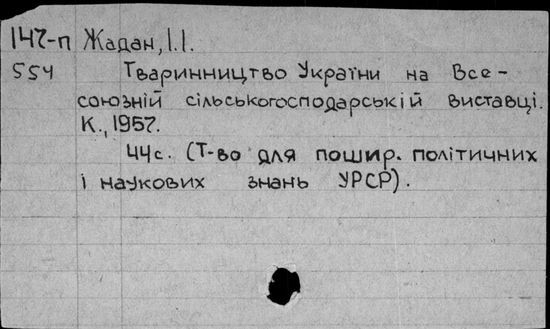 147-п Жадан, І.І.
554 Тваринництво України на Все-
союзній сільськогосподарській виставці.
К., 1957.
44с. (Т-во для пошир. політичних
і наукових знань УРСР).